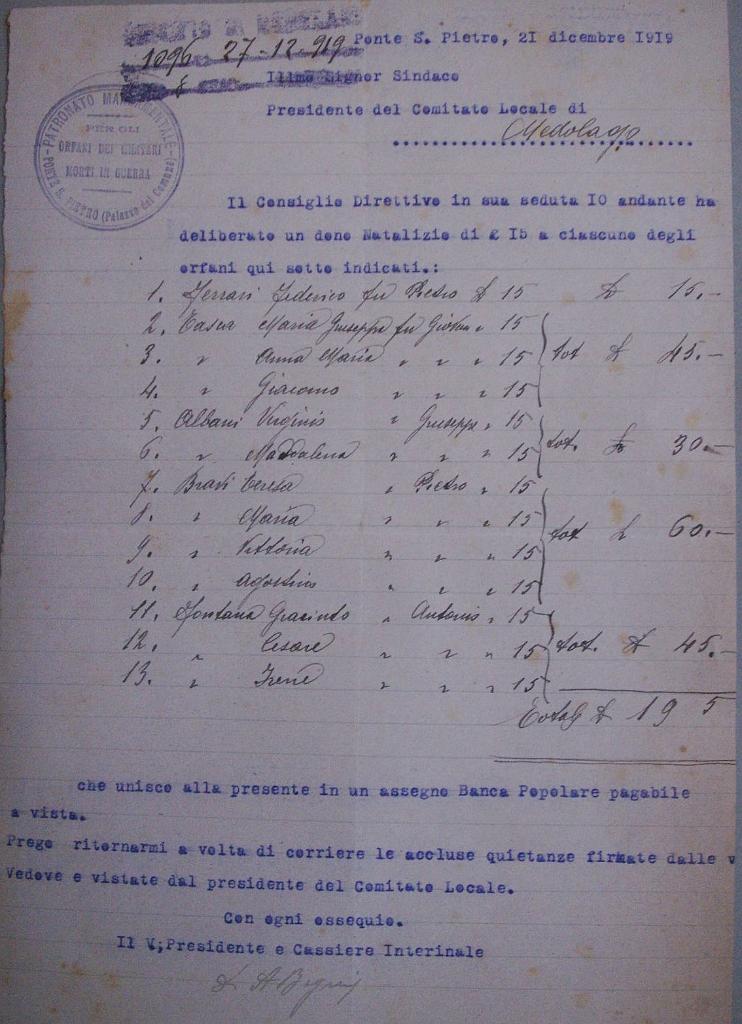 1096 27-12-919
Ponte S. Pietro, 21 dicembre 1919
Illmo Signor Sindaco
Presidente del Comitato Locale di
Medolago
PATRONATO MANDAMENTALE
PER GLI
ORFANI DEI MILITARI
MORTI IN GUERRA
PONTE S. PIETRO (Palazzo del Comune)
Il Consiglio Direttivo in sua seduta IO andante ha
deliberato un dono Natalizio di £ I5 a ciascuno degli
orfani qui sotto indicati.:
1. Ferrari Federico fu Pietro £ 15 £ 15.-
2. Tasca Maria Giuseppa fu Giovan " 15
3. " Anna Maria " " " 15 tot £ 45.-
4. " Giacomo " " " 15
5. Albani Virginio " Giuseppe " 15
6. " Maddalena " " " 15 tot. £ 30.-
7. Bravi Teresa " Pietro " 15
8. " Maria " " " 15
9. " Vittoria " " " 15 tot £ 60.-
10. " Agostino " " " 15
11. Fontana Giacinto " Antonio " 15
12. " Cesare " " " 15 tot. £ 45.-
13. " Irene " " " 15
Totale £ 195
che unisco alla presente in un assegno Banca Popolare pagabile
a vista.
Prego ritornarmi a volta di corriere le accluse quietanze firmate dalle v
Vedove e vistate dal presidente del Comitato Locale.
Con ogni ossequio.
Il V;Presidente e Cassiere Interinale